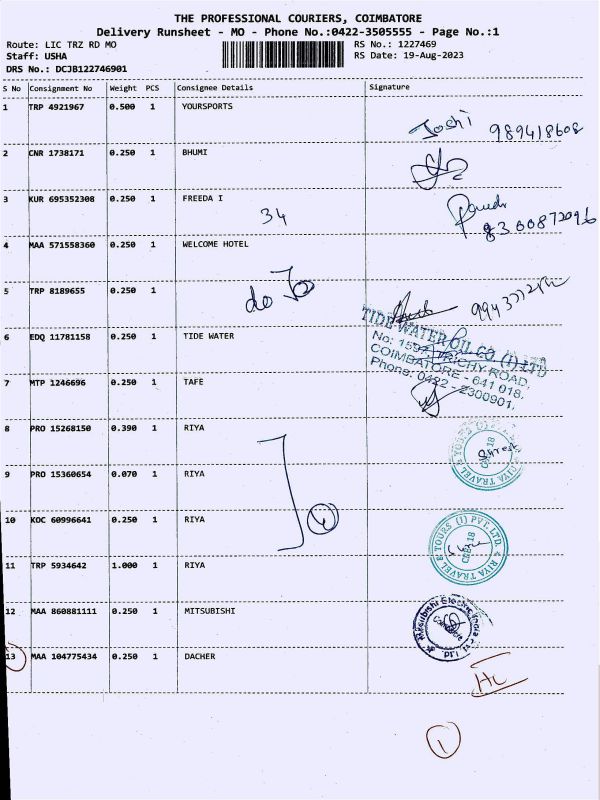 THE PROFESSIONAL COURIERS, COIMBATORE
Delivery Runsheet - MO - Phone No.:0422-3505555 - Page No.:1
Route: LIC TRZ RD MO RS No.: 1227469
Staff: USHA RS Date: 19-Aug-2023
DRS No.: DCJB122746901
S No Consignment No Weight PCS Consignee Details Signature
1 TRP 4921967 0.500 1 YOURSPORTS
Joshi 989418608
2 CNR 1738171 0.250 1 BHUMI
3 KUR 695352308 0.250 1 FREEDA I
34
8300872096
4 MAA 571558360 0.250 1 WELCOME HOTEL
5 TRP 8189655 0.250 1
do
TIDE WATER OIL CO. (I) LTD
6 EDQ 11781158 0.250 1 TIDE WATER
No: 1597, TRICHY ROAD,
COIMBATORE - 641 018,
Phone: 0422 - 2300901,
7 MTP 1246696 0.250 1 TAFE
8 PRO 15268150 0.390 1 RIYA
RIYA TRAVEL & TOURS (I) PVT. LTD.
CBE-18
9 PRO 15360654 0.070 1 RIYA
10 KOC 60996641 0.250 1 RIYA
4
RIYA TRAVEL & TOURS (I) PVT. LTD.
CBE-18
11 TRP 5934642 1.000 1 RIYA
12 MAA 860881111 0.250 1 MITSUBISHI
Mitsubishi Electric India Pvt. Ltd.
Coimbatore
13 MAA 104775434 0.250 1 DACHER
1